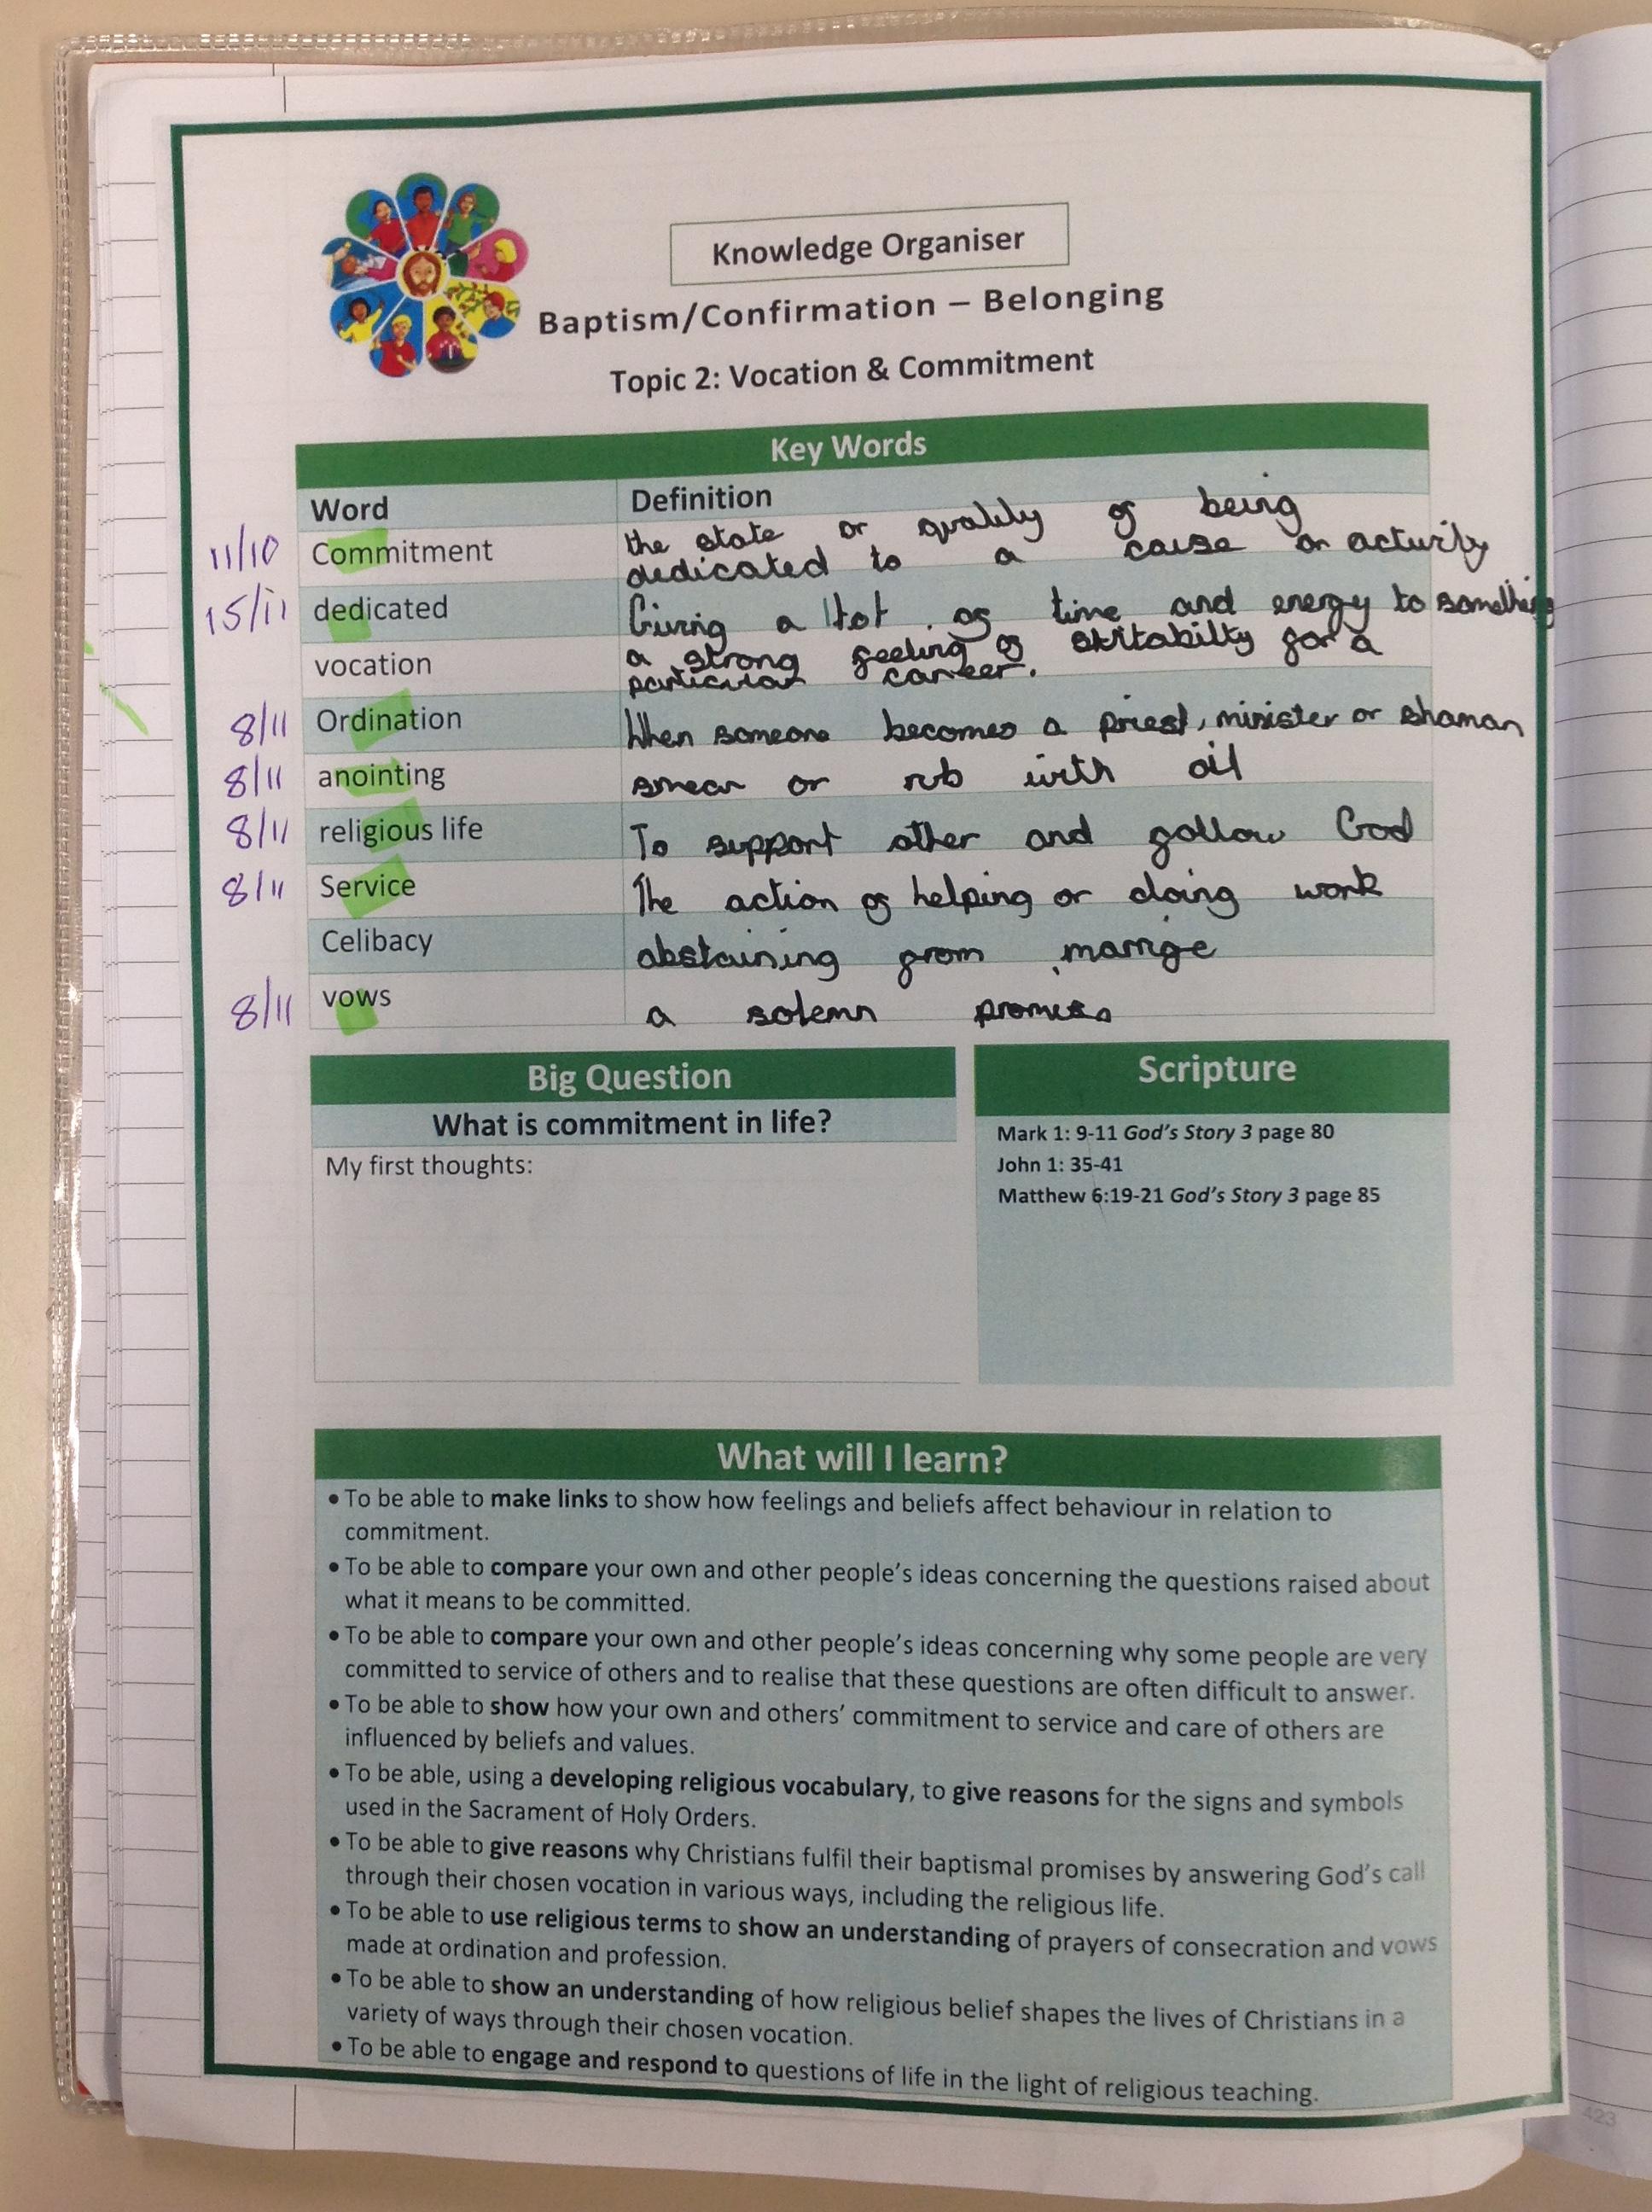 Knowledge Organiser
Baptism/Confirmation – Belonging
Topic 2: Vocation & Commitment
Key Words
Word Definition
11/10 Commitment the state or quality of being
dedicated to a cause or activity
15/11 dedicated Giving a lot of time and energy to something
vocation a strong feeling of suitabilty for a
particular career.
8/11 Ordination When someone becomes a priest, minister or shaman
8/11 anointing smear or rub with oil
8/11 religious life To support other and follow God
8/11 Service The action of helping or doing work
Celibacy abstaining from marrige
8/11 vows a solemn promise
Big Question
What is commitment in life?
My first thoughts:
Scripture
Mark 1: 9-11 God's Story 3 page 80
John 1: 35-41
Matthew 6:19-21 God's Story 3 page 85
What will I learn?
• To be able to make links to show how feelings and beliefs affect behaviour in relation to
commitment.
• To be able to compare your own and other people's ideas concerning the questions raised about
what it means to be committed.
• To be able to compare your own and other people's ideas concerning why some people are very
committed to service of others and to realise that these questions are often difficult to answer.
• To be able to show how your own and others' commitment to service and care of others are
influenced by beliefs and values.
• To be able, using a developing religious vocabulary, to give reasons for the signs and symbols
used in the Sacrament of Holy Orders.
• To be able to give reasons why Christians fulfil their baptismal promises by answering God's call
through their chosen vocation in various ways, including the religious life.
• To be able to use religious terms to show an understanding of prayers of consecration and vows
made at ordination and profession.
• To be able to show an understanding of how religious belief shapes the lives of Christians in a
variety of ways through their chosen vocation.
• To be able to engage and respond to questions of life in the light of religious teaching.
423